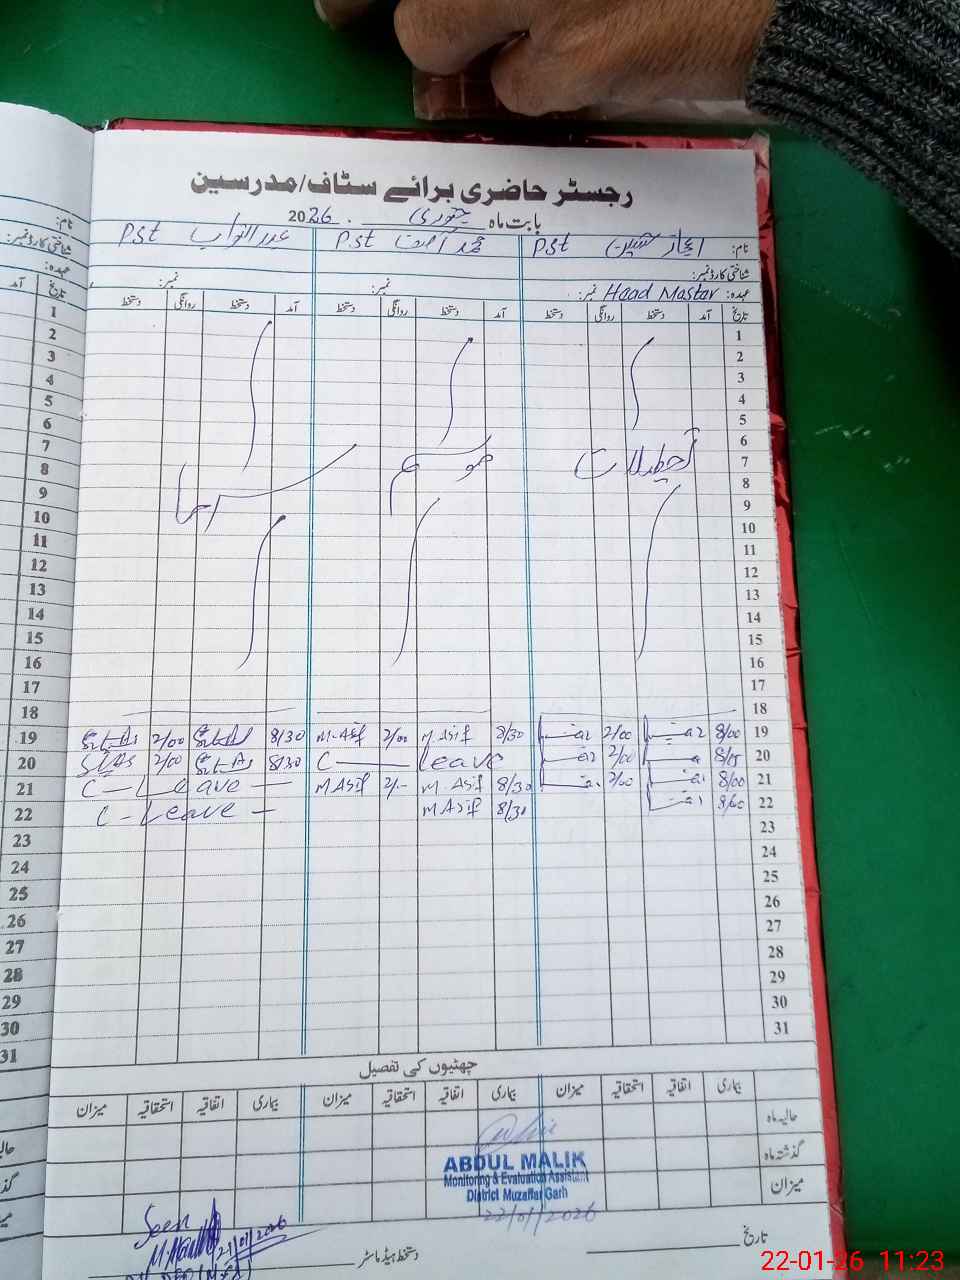 رجسٹر حاضری برائے سٹاف/مدرسین
بابت ماہ جنوری 2026
نام: اعجاز حسین PST محمد آصف PST عبدالتواب PST
شناختی کارڈ نمبر:
عہدہ: Head Master نمبر: نمبر: نمبر:
تاریخ آمد دستخط روانگی دستخط آمد دستخط روانگی دستخط آمد دستخط روانگی دستخط
1
2
3
4
5
6
7 تعطیلات موسم سرما
8
9
10
11
12
13
14
15
16
17
18
19 8/00 2/00 8/30 M Asif 2/00 M-Asif 8/30 2/00
20 8/15 2/00 C Leave 8/30 2/00
21 8/00 2/00 8/30 M. Asif 2/- M Asif C-Leave
22 8/00 8/30 M Asif C-Leave
23
24
25
26
27
28
29
30
31
چھٹیوں کی تفصیل
بیماری اتفاقیہ استحقاقیہ میزان بیماری اتفاقیہ استحقاقیہ میزان بیماری اتفاقیہ استحقاقیہ میزان
حالیہ ماہ
گذشتہ ماہ
میزان
ABDUL MALIK
Monitoring & Evaluation Assistant
District Muzaffar Garh
22/01/2026
Seen
21/01/2026
تاریخ دستخط ہیڈ ماسٹر
نام:
شناختی کارڈ نمبر:
عہدہ:
تاریخ آمد
1
2
3
4
5
6
7
8
9
10
11
12
13
14
15
16
17
18
19
20
21
22
23
24
25
26
27
28
29
30
31
22-01-26 11:23